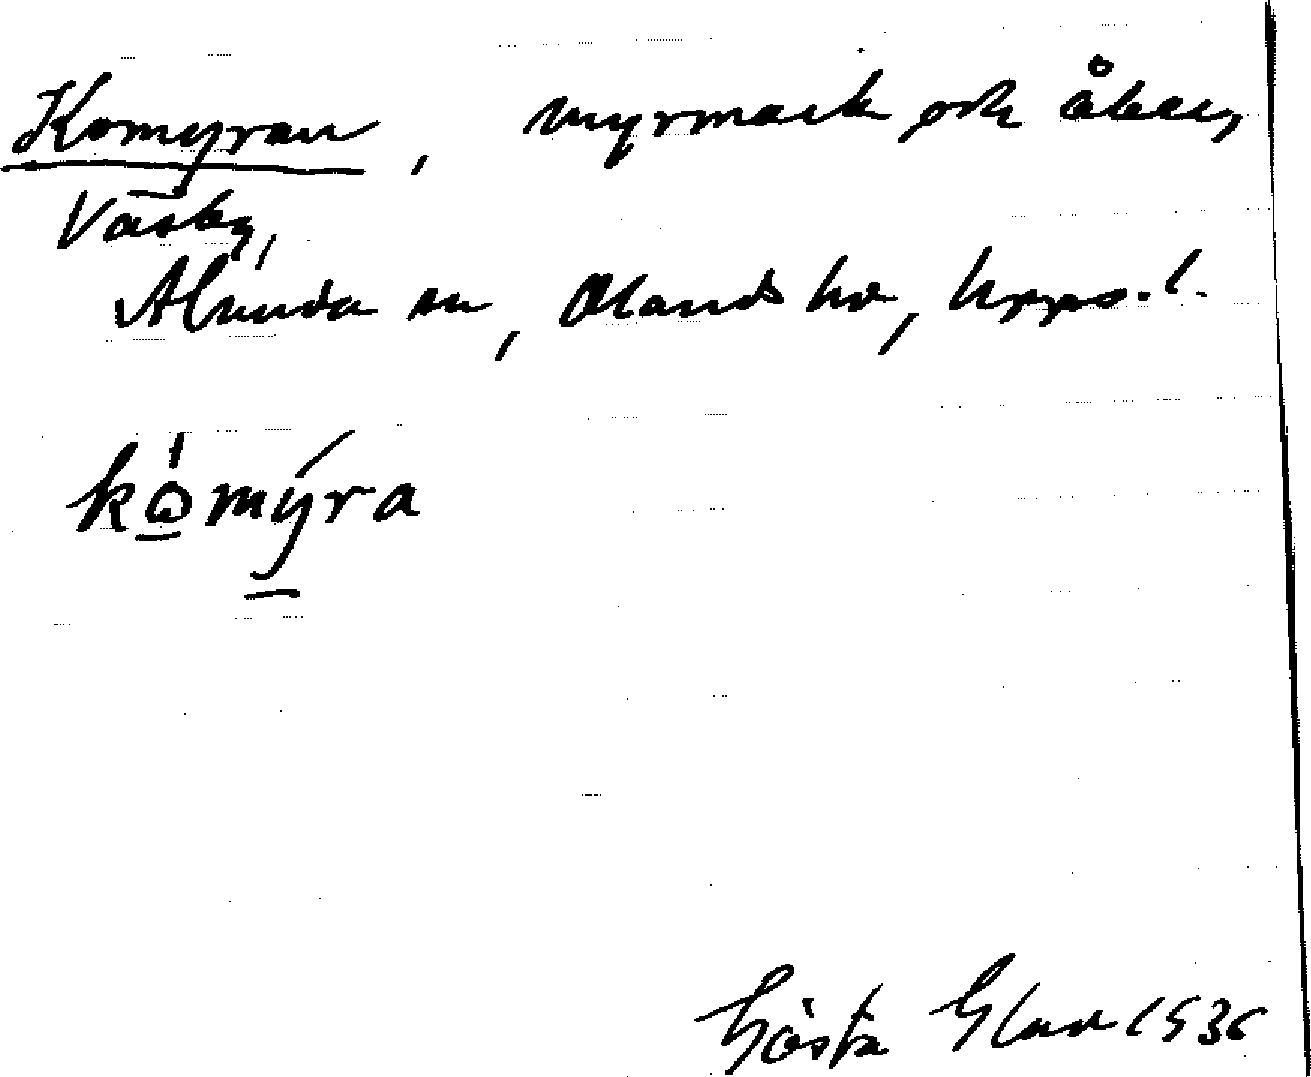 Komyran, myrmark och åker,
Väsby,
Alunda sn, Olands hd, Upps. l.
kòmýra
Gösta Glad 1936